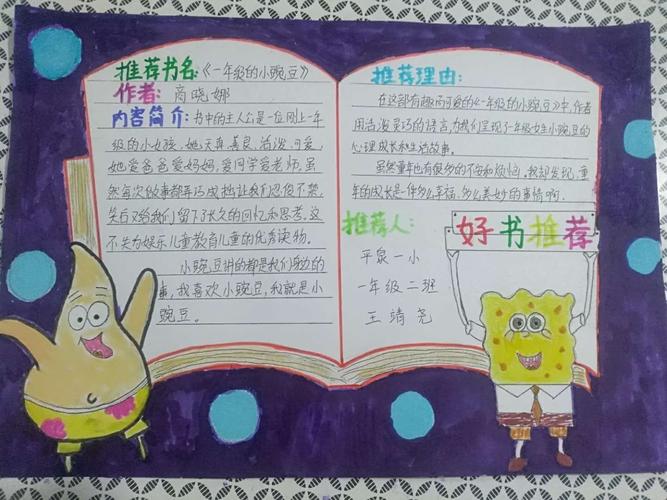 推荐书名:《一年级的小豌豆》
作者: 商晓娜
内容简介: 书中的主人公是一位刚上一年
级的小女孩,她天真、善良、活泼、可爱,
她爱爸爸爱妈妈,爱同学爱老师,虽
然每次做事都弄巧成拙让我们忍俊不禁,
笑后又给我们留下了长久的回忆和思考。这
不失为娱乐儿童教育儿童的优秀读物。
小豌豆讲的都是我们身边的
事,我喜欢小豌豆,我就是小
豌豆。
推荐理由:
在这部有趣而可爱的《一年级的小豌豆》中,作者
用活泼灵巧的语言,为我们呈现了一年级女生小豌豆的
心理成长和生活故事。
虽然童年也有很多的不安和烦恼,我却发现,童
年的成长是件多么幸福、多么美妙的事情啊。
推荐人:
平泉一小
一年级二班
王靖尧
好书推荐